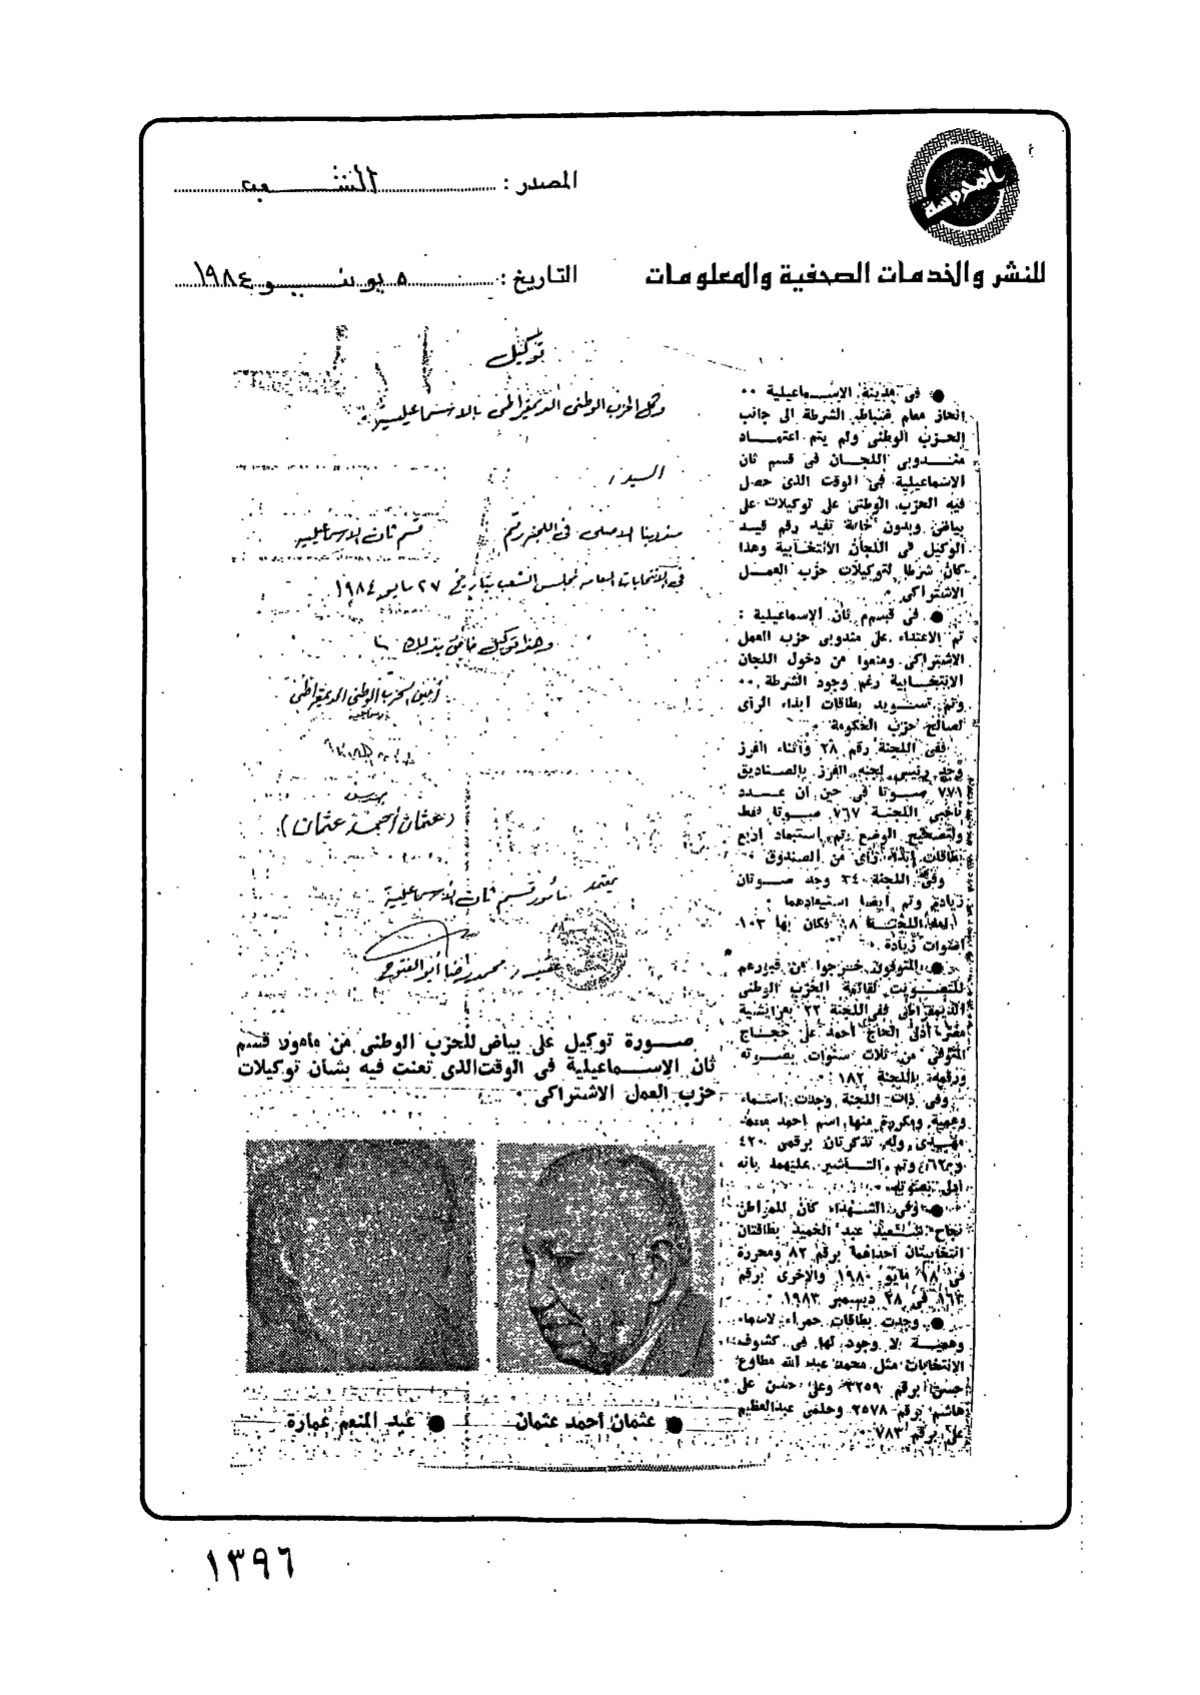 المحروسة
المصدر : الشعب
للنشر والخدمات الصحفية والمعلومات
التاريخ : ٥ يونيو ١٩٨٤
● فى مدينة الاسماعيلية ..
انحاز معظم ضباط الشرطة الى جانب
الحزب الوطنى ولم يتم اعتماد
مندوبى اللجان فى قسم ثان
الاسماعيلية فى الوقت الذى حصل
فيه الحزب الوطنى على توكيلات على
بياض وبدون خانة تفيد رقم قيد
الوكيل فى اللجان الانتخابية وهذا
كان شرطا لتوكيلات حزب العمل
الاشتراكى .
● فى قسم ثان الاسماعيلية :
تم الاعتداء على مندوبى حزب العمل
الاشتراكى ومنعوا من دخول اللجان
الانتخابية رغم وجود الشرطة ..
وتم تسويد بطاقات ابداء الرأى
لصالح حزب الحكومة .
ففى اللجنة رقم ٢٨ وأثناء الفرز
وجد رئيس لجنة الفرز بالصناديق
٧٧١ صوتا فى حين أن عدد
ناخبى اللجنة ٧٦٧ صوتا فقط
ولتصحيح الوضع تم استبعاد اربع
بطاقات ابداء رأى من الصندوق .
وفى اللجنة ٣٤ وجد صوتان
زيادة وتم أيضا استبعادهما .
أما اللجنة ١٨ فكان بها ١٠٣
أصوات زيادة .
● المتوفون خرجوا من قبورهم
للتصويت لقائمة الحزب الوطنى
الديمقراطى ففى اللجنة ٢٢ بعرايشية
مصر أدلى الحاج أحمد على حجاج
المتوفى من ثلاث سنوات بصوته
ورقمه باللجنة ١٨٢ .
وفى ذات اللجنة وجدت أسماء
وهمية ومكررة منها اسم أحمد محمد
مهيدى وله تذكرتان برقمى ٤٢٠
وتم التأشير عليهما بأنه
أدلى بصوته .
● وفى الشهداء كان للمواطن
نجاح سعيد عبد الحميد بطاقتان
انتخابيتان احداهما برقم ٨٢ ومحررة
فى ١٨ مايو ١٩٨٠ والأخرى برقم
٨٦٣ فى ٢٨ ديسمبر ١٩٨٣ .
● وجدت بطاقات حمراء لأسماء
وهمية لا وجود لها فى كشوف
الانتخابات مثل محمد عبد الله مطاوع
حسن برقم ٣٢٥٩ وعلى حسن على
هاشم برقم ٢٥٧٨ وحلمى عبدالعظيم
على برقم ٧٨٣ .
توكيل
وكل الحزب الوطنى الديمقراطى بالاسماعيلية
السيد /
مندوبنا الاصلى فى اللجنة رقم قسم ثان الاسماعيلية
فى الانتخابات العامة لمجلس الشعب بتاريخ ٢٧ مايو ١٩٨٤
وهذا توكيل خاص بذلك
أمين الحزب الوطنى الديمقراطى
بالاسماعيلية
مهندس
(عثمان أحمد عثمان)
يعتمد مأمور قسم ثان الاسماعيلية
عقيد / محمد رضا أبوالفتوح
صورة توكيل على بياض للحزب الوطنى من مأمور قسم
ثان الاسماعيلية فى الوقت الذى تعنت فيه بشأن توكيلات
حزب العمل الاشتراكى .
● عثمان أحمد عثمان
● عبد المنعم عمارة
١٣٩٦